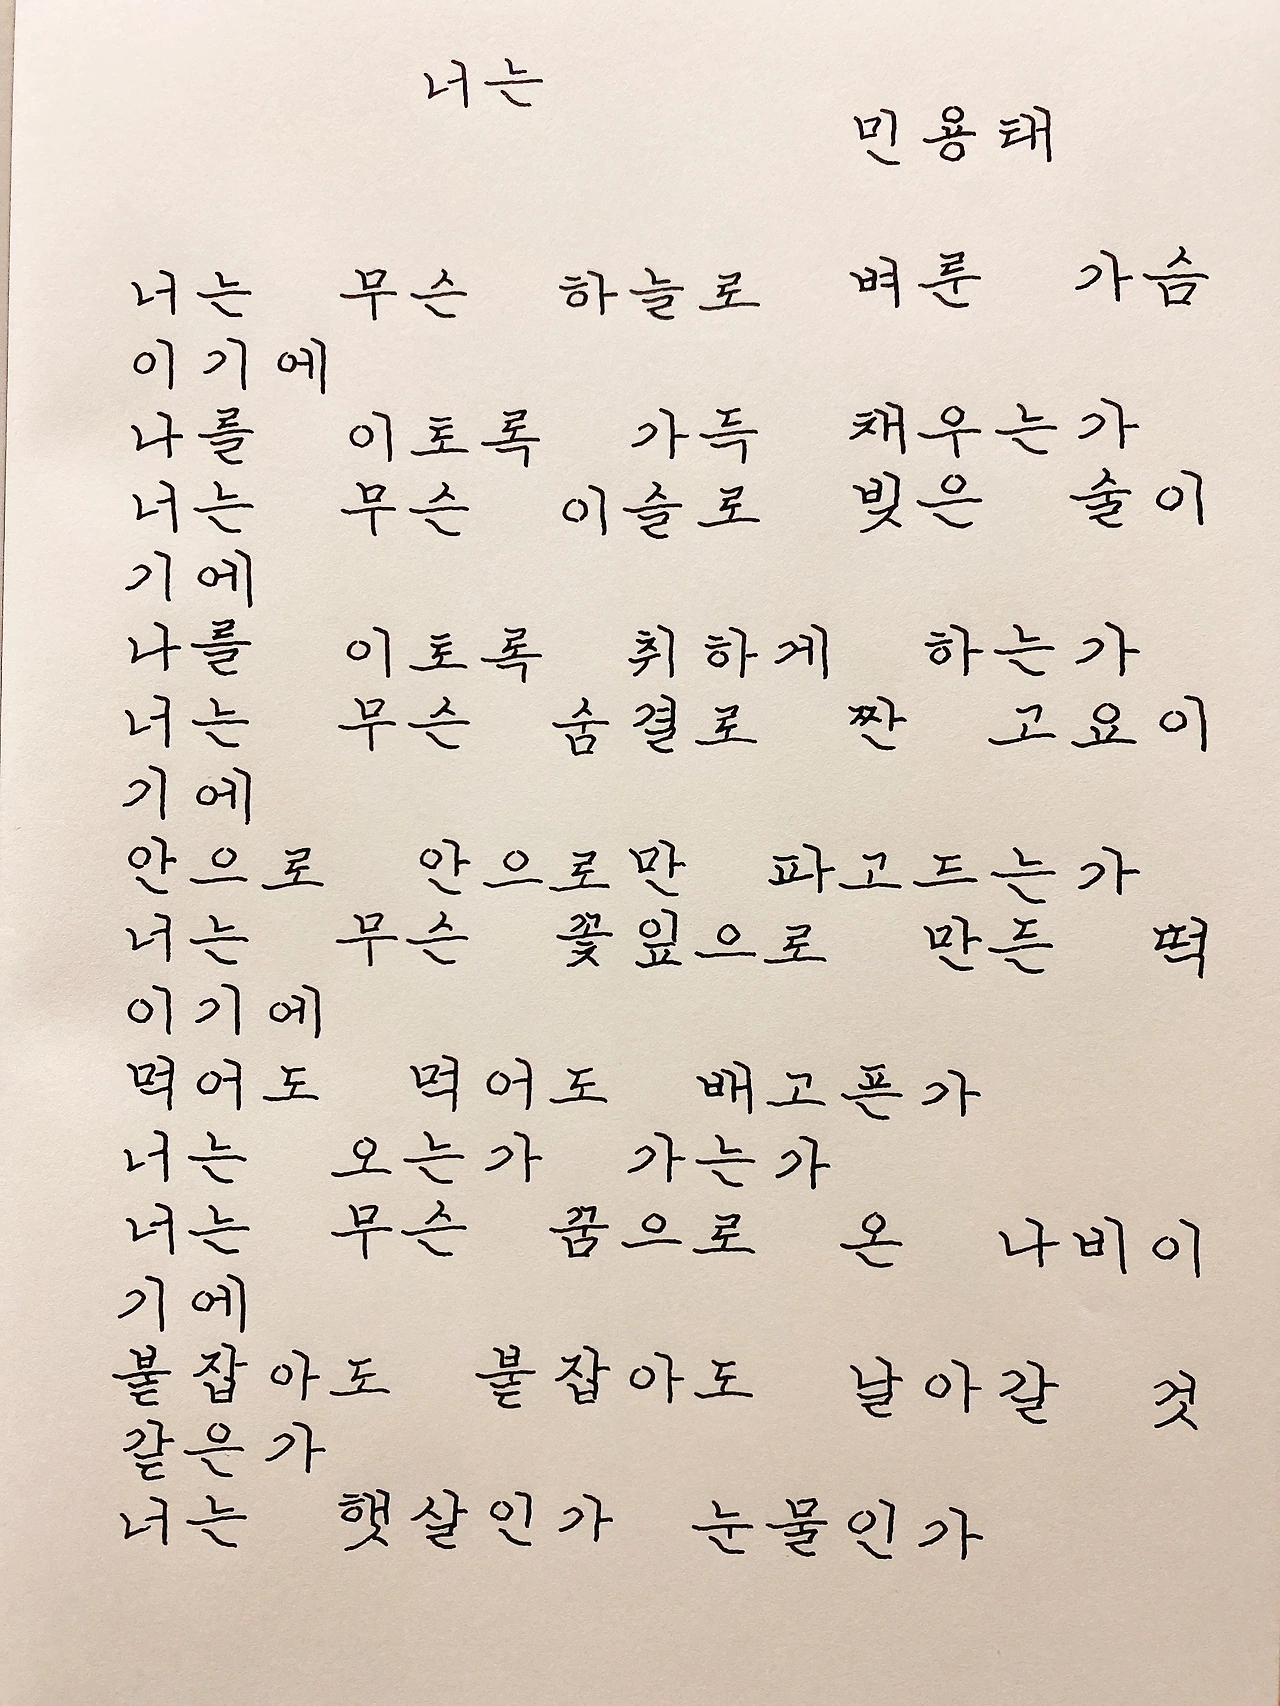 너는
민용태
너는 무슨 하늘로 벼룬 가슴
이기에
나를 이토록 가득 채우는가
너는 무슨 이슬로 빚은 술이
기에
나를 이토록 취하게 하는가
너는 무슨 숨결로 짠 고요이
기에
안으로 안으로만 파고드는가
너는 무슨 꽃잎으로 만든 떡
이기에
먹어도 먹어도 배고픈가
너는 오는가 가는가
너는 무슨 꿈으로 온 나비이
기에
붙잡아도 붙잡아도 날아갈 것
같은가
너는 햇살인가 눈물인가